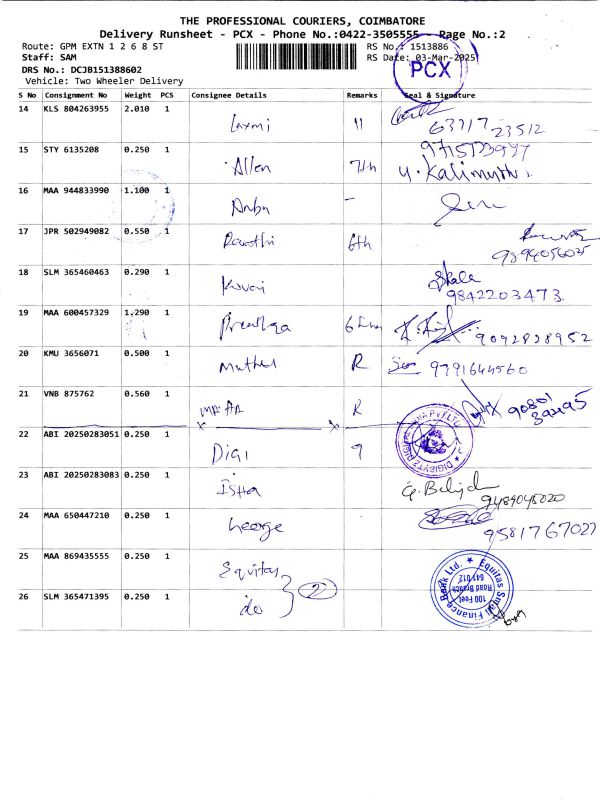 THE PROFESSIONAL COURIERS, COIMBATORE
Delivery Runsheet - PCX - Phone No.:0422-3505555 Page No.:2
Route: GPM EXTN 1 2 6 8 ST RS No.: 1513886
Staff: SAM RS Date: 03-Mar-2025
PCX
DRS No.: DCJB151388602
Vehicle: Two Wheeler Delivery
S No Consignment No Weight PCS Consignee Details Remarks Seal & Signature
14 KLS 804263955 2.010 1 Laxmi 11
15 STY 6135208 0.250 1 Allen 7th
16 MAA 944833990 1.100 1 Anbu -
17 JPR 502949082 0.550 1 6th
18 SLM 365460463 0.290 1 Kovai 9842203473
19 MAA 600457329 1.290 1 9092828952
20 KMU 3656071 0.500 1 R 9791644560
21 VNB 875762 0.560 1 R
22 ABI 20250283051 0.250 1 DIGI 9
23 ABI 20250283083 0.250 1 Isha
24 MAA 650447210 0.250 1 George
25 MAA 869435555 0.250 1 Equitas
26 SLM 365471395 0.250 1 do 2
Equitas Small Finance Bank Ltd.
100 Feet
Road Branch
641 012